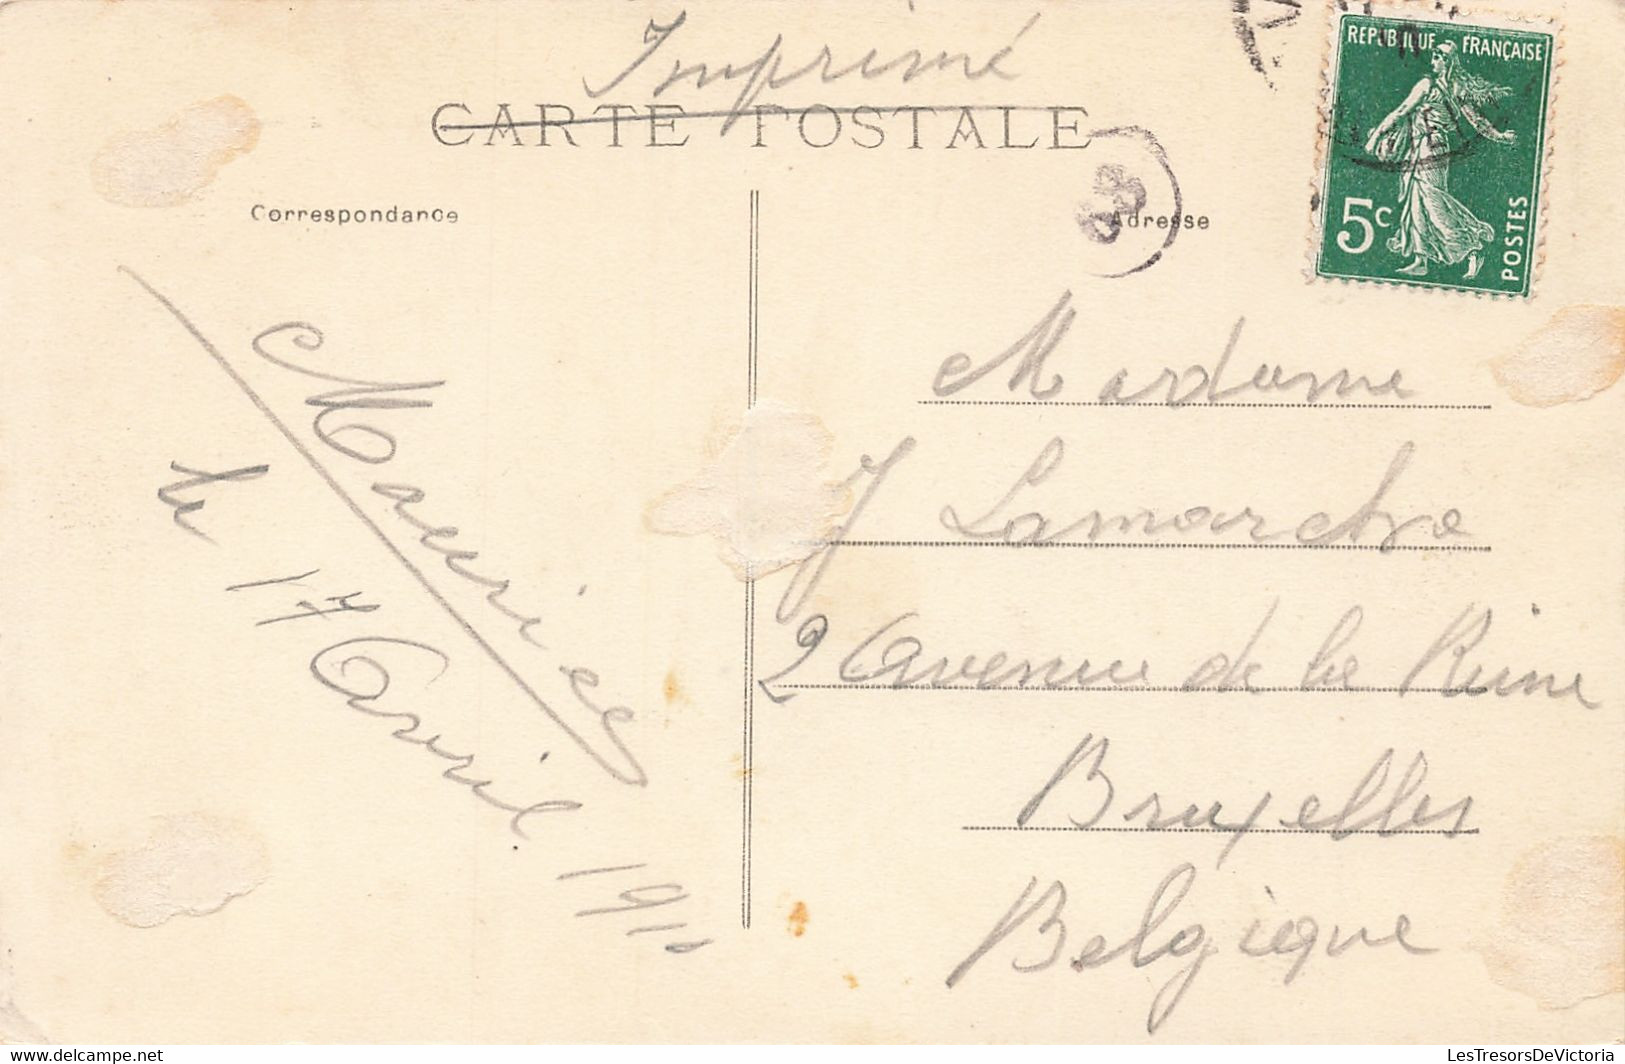 Imprimé
CARTE POSTALE
REPUBLIQUE FRANÇAISE
5c
POSTES
Correspondance
Adresse
Maurice
le 17 Avril 191
Madame
J Lamarche
2 Avenue de la Reine
Bruxelles
Belgique
LesTresorsDeVictoria.delcampe.net